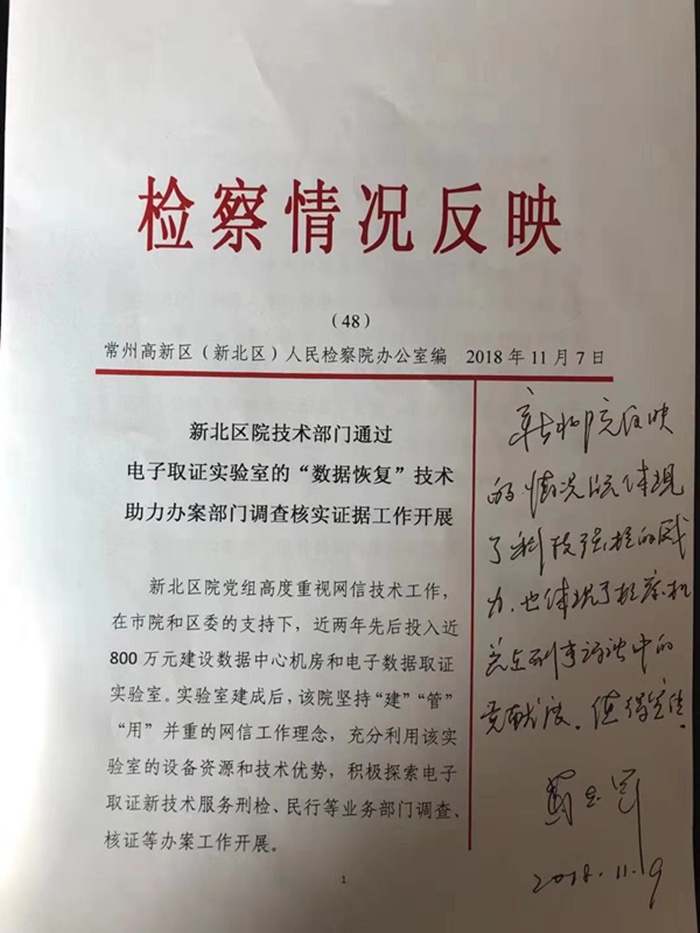 检察情况反映
（48）
常州高新区（新北区）人民检察院办公室编 2018年11月7日
新北区院技术部门通过
电子取证实验室的“数据恢复”技术
助力办案部门调查核实证据工作开展
新北区院党组高度重视网信技术工作，
在市院和区委的支持下，近两年先后投入近
800万元建设数据中心机房和电子数据取证
实验室。实验室建成后，该院坚持“建”“管”
“用”并重的网信工作理念，充分利用该实
验室的设备资源和技术优势，积极探索电子
取证新技术服务刑检、民行等业务部门调查、
核证等办案工作开展。
1
新北院反映
的情况既体现
了科技强检的威
力，也体现了检察机
关在刑事诉讼中的
贡献度。值得宣传。
2018.11.9